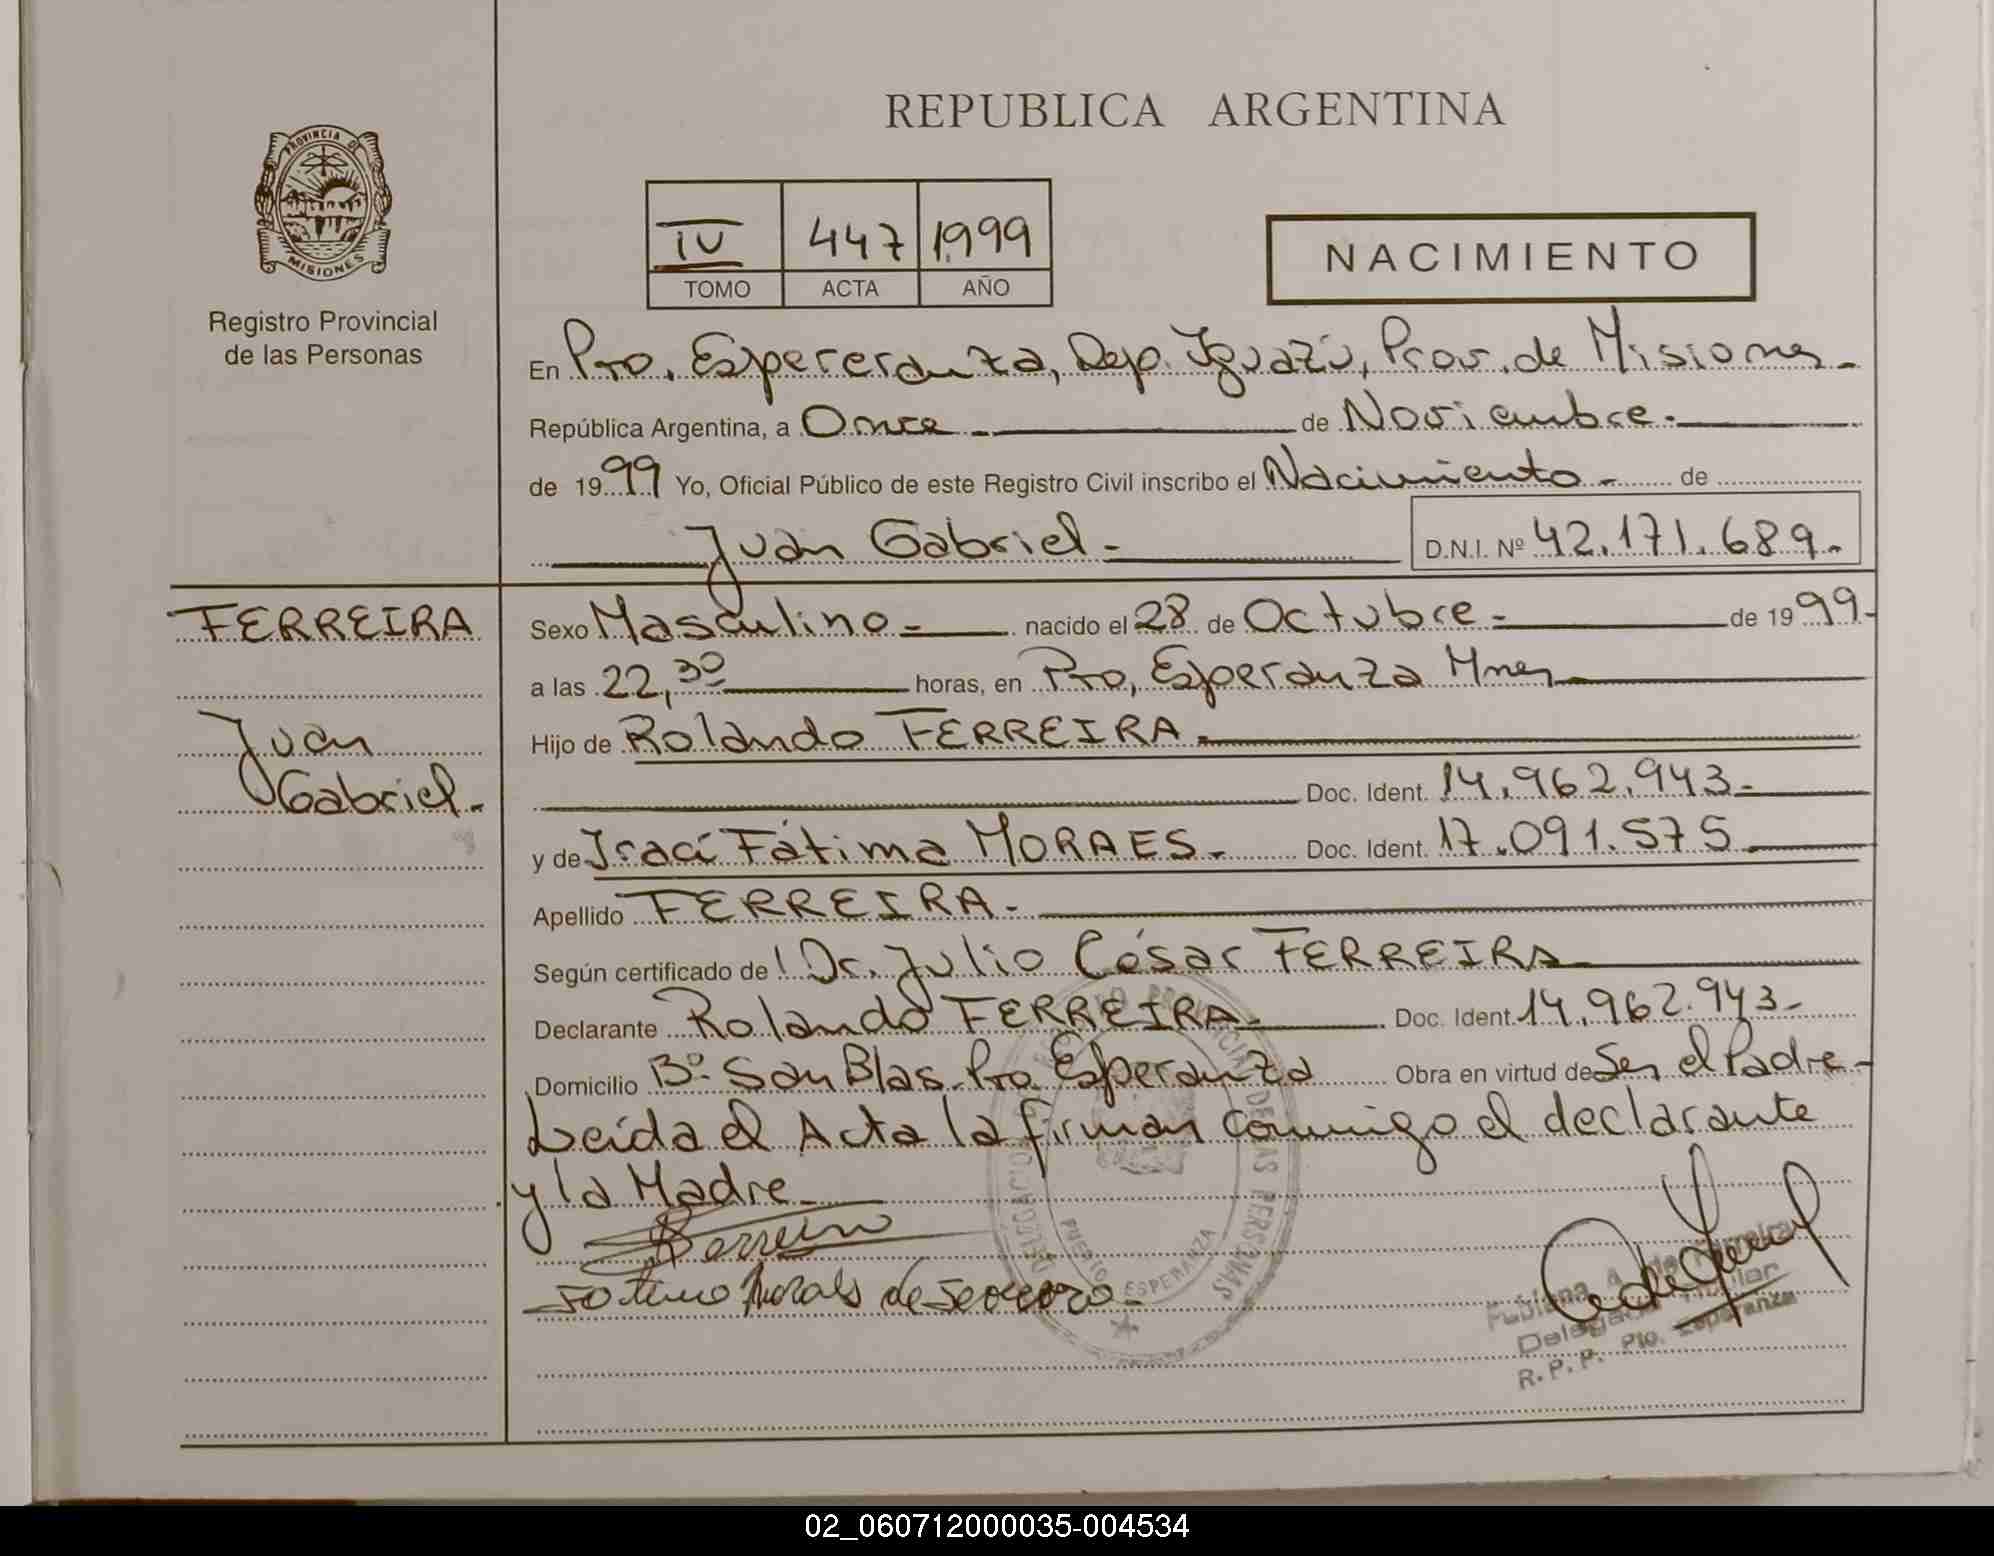 REPUBLICA ARGENTINA
PROVINCIA DE
MISIONES
Registro Provincial
de las Personas
IV 447 1999
TOMO ACTA AÑO
NACIMIENTO
En Pto. Espereranza, Dep. Iguazú, Prov. de Misiones-
República Argentina, a Once - de Noviembre.-
de 1999 Yo, Oficial Público de este Registro Civil inscribo el Nacimiento - de
Juan Gabriel - D.N.I. Nº 42.171.689.-
FERREIRA
Juan
Gabriel.-
Sexo Masculino - nacido el 28 de Octubre - de 1999-
a las 22,30 horas, en Pto, Esperanza Mnes
Hijo de Rolando FERREIRA-
Doc. Ident. 14.962.943-
y de Irací Fátima MORAES.- Doc. Ident. 17.091.575
Apellido FERREIRA.-
Según certificado de Dr. Julio César FERREIRA
Declarante Rolando FERREIRA- Doc. Ident. 14.962.943-
Domicilio Bº San Blas-Pto Esperanza Obra en virtud de Ser el Padre-
Leída el Acta la firman conmigo el declarante
y la Madre
DELEGACION REGISTRO PROVINCIAL DE LAS PERSONAS
PUERTO ESPERANZA
Fabiana A. de Ferreira
Delegada Titular
R.P.P. Pto. Esperanza
02_060712000035-004534